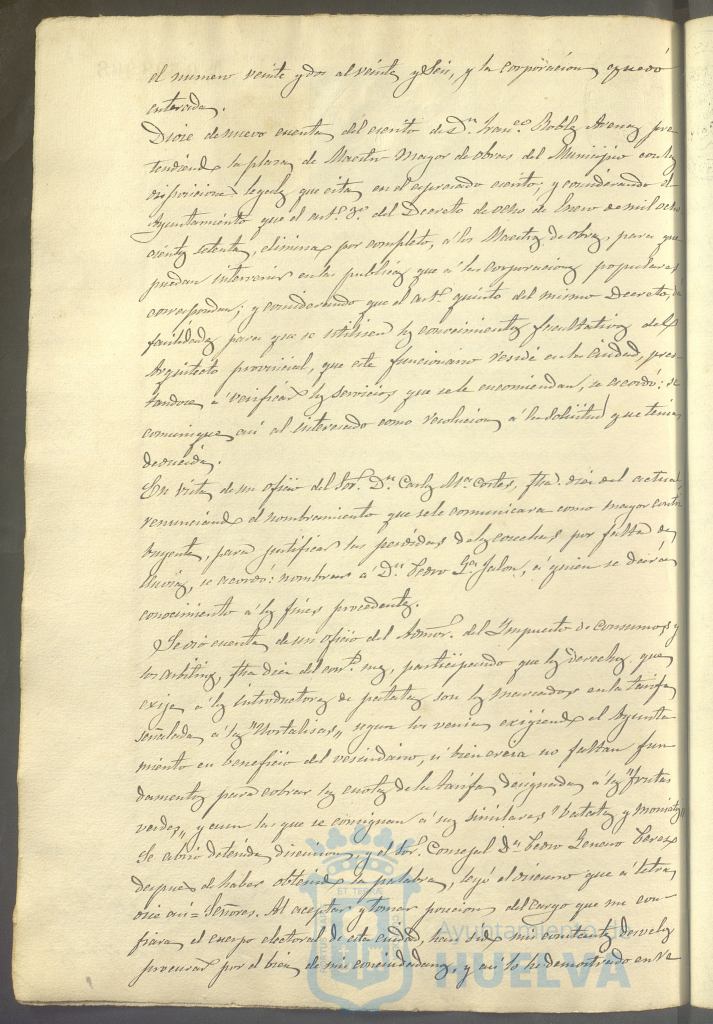 el numero veinte y dos al veinte y seis, y la corporacion quedó
enterada.
Diose de nuevo cuenta del escrito de Dn. Franco. Robles Arenas pre
tendiendo la plaza de Maestro mayor de obras del Municipio con las
disposiciones legales que cita en el expresado escrito; y considerando el
Ayuntamiento que el artº. 3º. del Decreto de ocho de Enero de mil ocho
cientos setenta, elimina por completo, á los Maestros de obras para que
puedan intervenir en las publicas que á las corporaciones populares
correspondan; y considerando que el artº. quinto del mismo Decreto, da
facilidades para que se utilisen los conocimientos facultativos del
Arquitecto provincial, que este funcionario reside en la ciudad, pres
tandose á verificar los servicios que se le encomiendan, se acordó: se
comunique asi al interesado como resolucion á la solicitud que tenia
deducida.
En vista de un oficio del Sor. Dn. Carlos Ma. Cortes, fha. diez del actual
renunciando el nombramiento que se le comunicara como mayor contri
buyente, para justificar las perdidas de las cosechas por falta de
lluvias, se acordó: nombrar á Dn. Pedro Ga. Jalon, á quien se dará
conocimiento á los fines procedentes.
Se dió cuenta de un oficio del Admor. del Impuesto de Consumos y
los arbitrios, fha diez del corte. mes, participando que los derechos que
exije á los introductores de patatas son los marcados en la tarifa
señalada á las "Hortalisas" segun los venia exigiendo el Ayunta
miento en beneficio del vecindario, si bien creia no faltan fun
damentos para cobrar las cuotas de la tarifa designadas á las "frutas
verdes" y en las que se consignan á sus similares "batatas y moniatos"
Se abrió detenida discusion, y el Sor. Concejal Dn. Pedro Genaro Perez
despues de haber obtenido la palabra, leyó el discurso que á letra
dice asi = Señores. Al aceptar y tomar posesion del cargo que me con
fiara el cuerpo electoral de esta ciudad, han sido mis constantes desvelos
procurar por el bien de mis conciudadanos, y asi lo he demostrado en
Ayuntamiento de
HUELVA